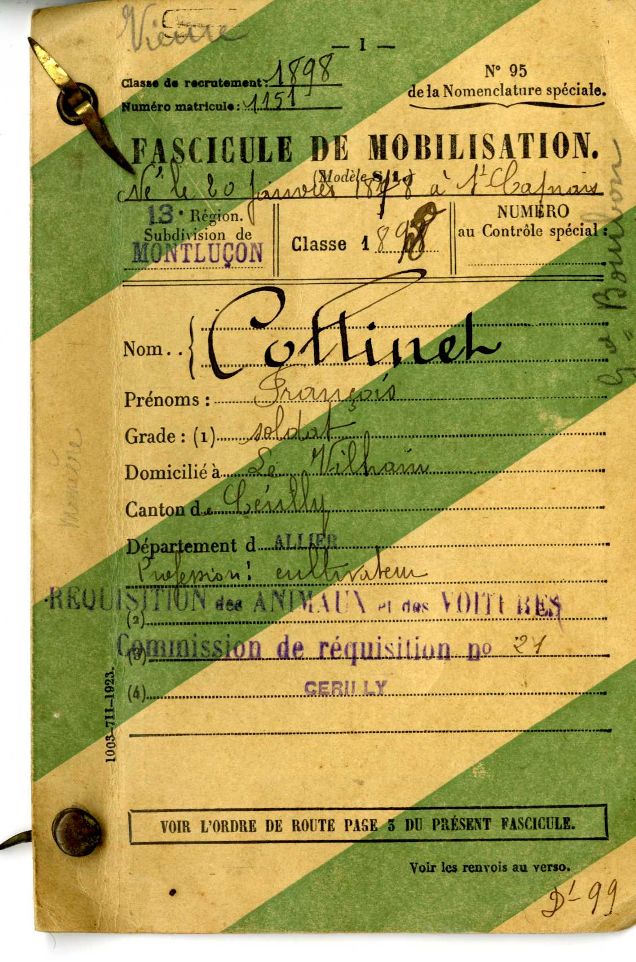 Vieure
— 1 —
Classe de recrutement: 1898
Numéro matricule: 1151
N° 95
de la Nomenclature spéciale.
FASCICULE DE MOBILISATION.
(Modèle S/1.)
Né le 20 janvier 1878 à St
13e Région.
Subdivision de
MONTLUÇON
Classe 1898
NUMÉRO
au Contrôle spécial:
Bourbon
Nom.. Collinet
Prénoms: François
Grade: (1) soldat
Domicilié à Le Vilhain
Canton de Cérilly
Département d ALLIER
Profession: cultivateur
REQUISITION des ANIMAUX et des VOITURES
(2)
Commission de réquisition no 21
(3)
CERILLY
(4)
1003-711-1923.
VOIR L'ORDRE DE ROUTE PAGE 5 DU PRÉSENT FASCICULE.
Voir les renvois au verso.
Dt 99